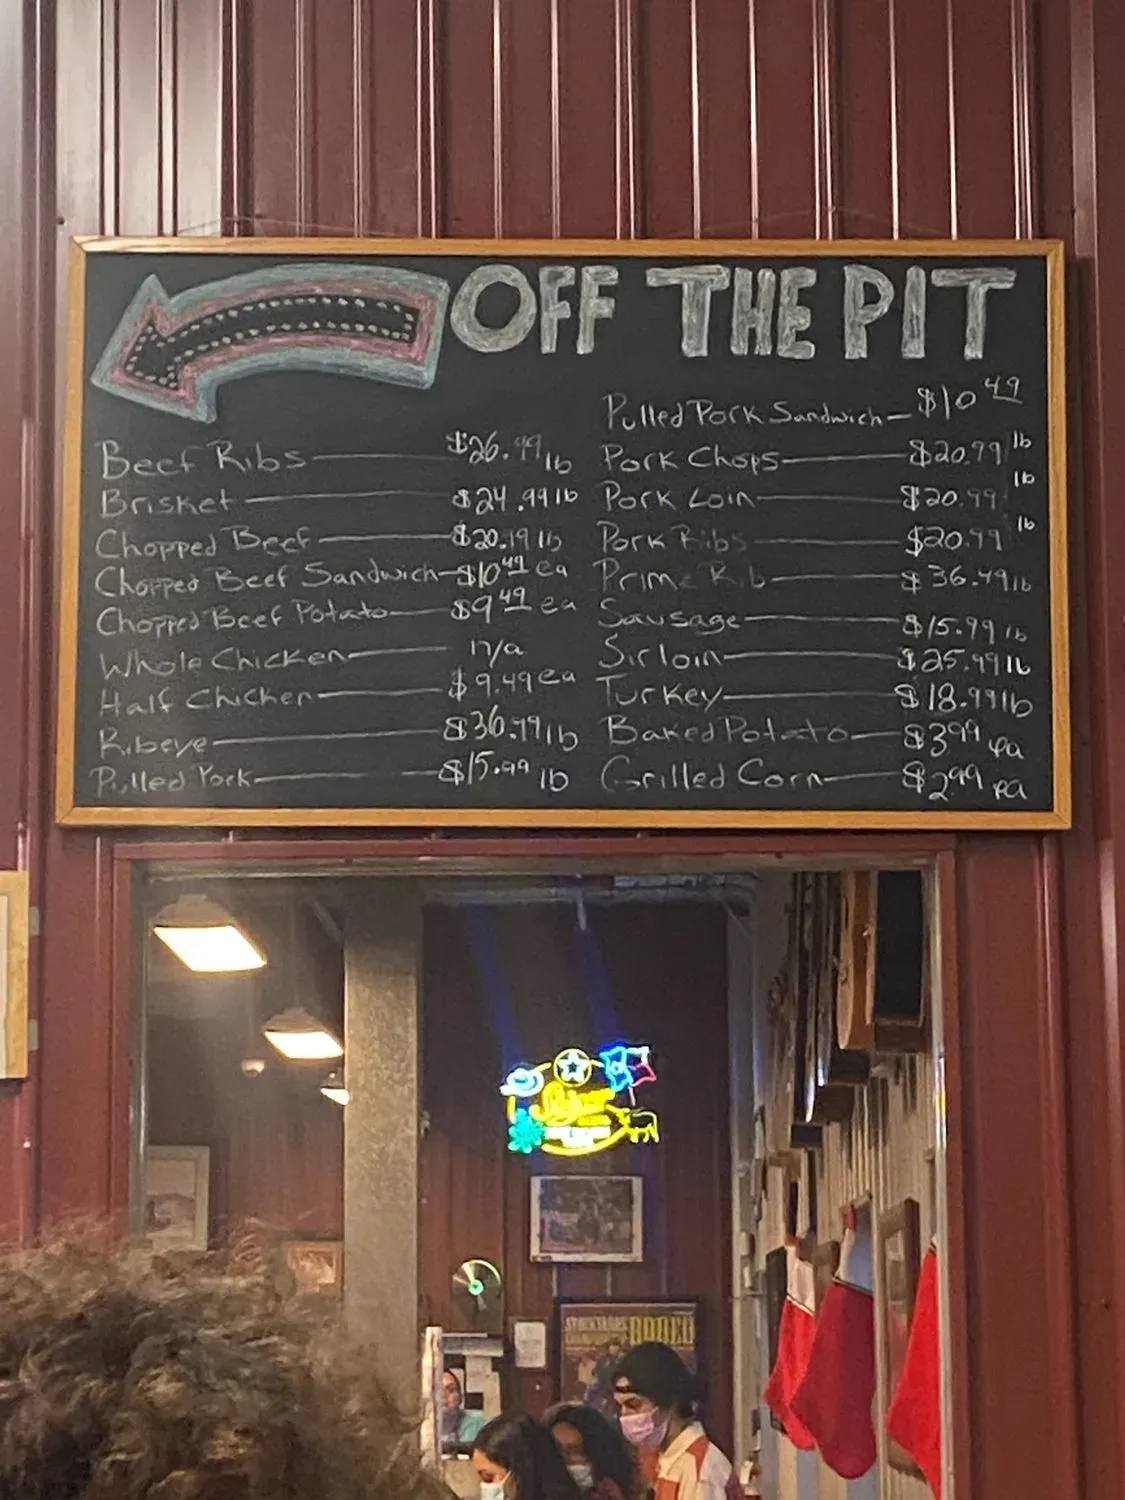 OFF THE PIT
Beef Ribs $26.99 lb
Brisket $24.99 lb
Chopped Beef $20.19 lb
Chopped Beef Sandwich $10 49 ea
Chopped Beef Potato $9 49 ea
Whole Chicken n/a
Half Chicken $9.49 ea
Ribeye lb
Pulled Pork $15.99 lb
Pulled Pork Sandwich $10 49
Pork Chops $20.99 lb
Pork Loin $20.99 lb
Pork Ribs $20.99 lb
Prime Rib $36.49 lb
Sausage $15.99 lb
Sirloin $25.99 lb
Turkey $18.99 lb
Baked Potato $3 99 ea
Grilled Corn $2 99 ea
STOCKYARDS
RODEO